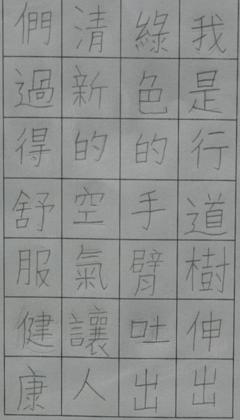 我是行道樹伸出
綠色的手臂吐出
清新的空氣讓人
們過得舒服健康